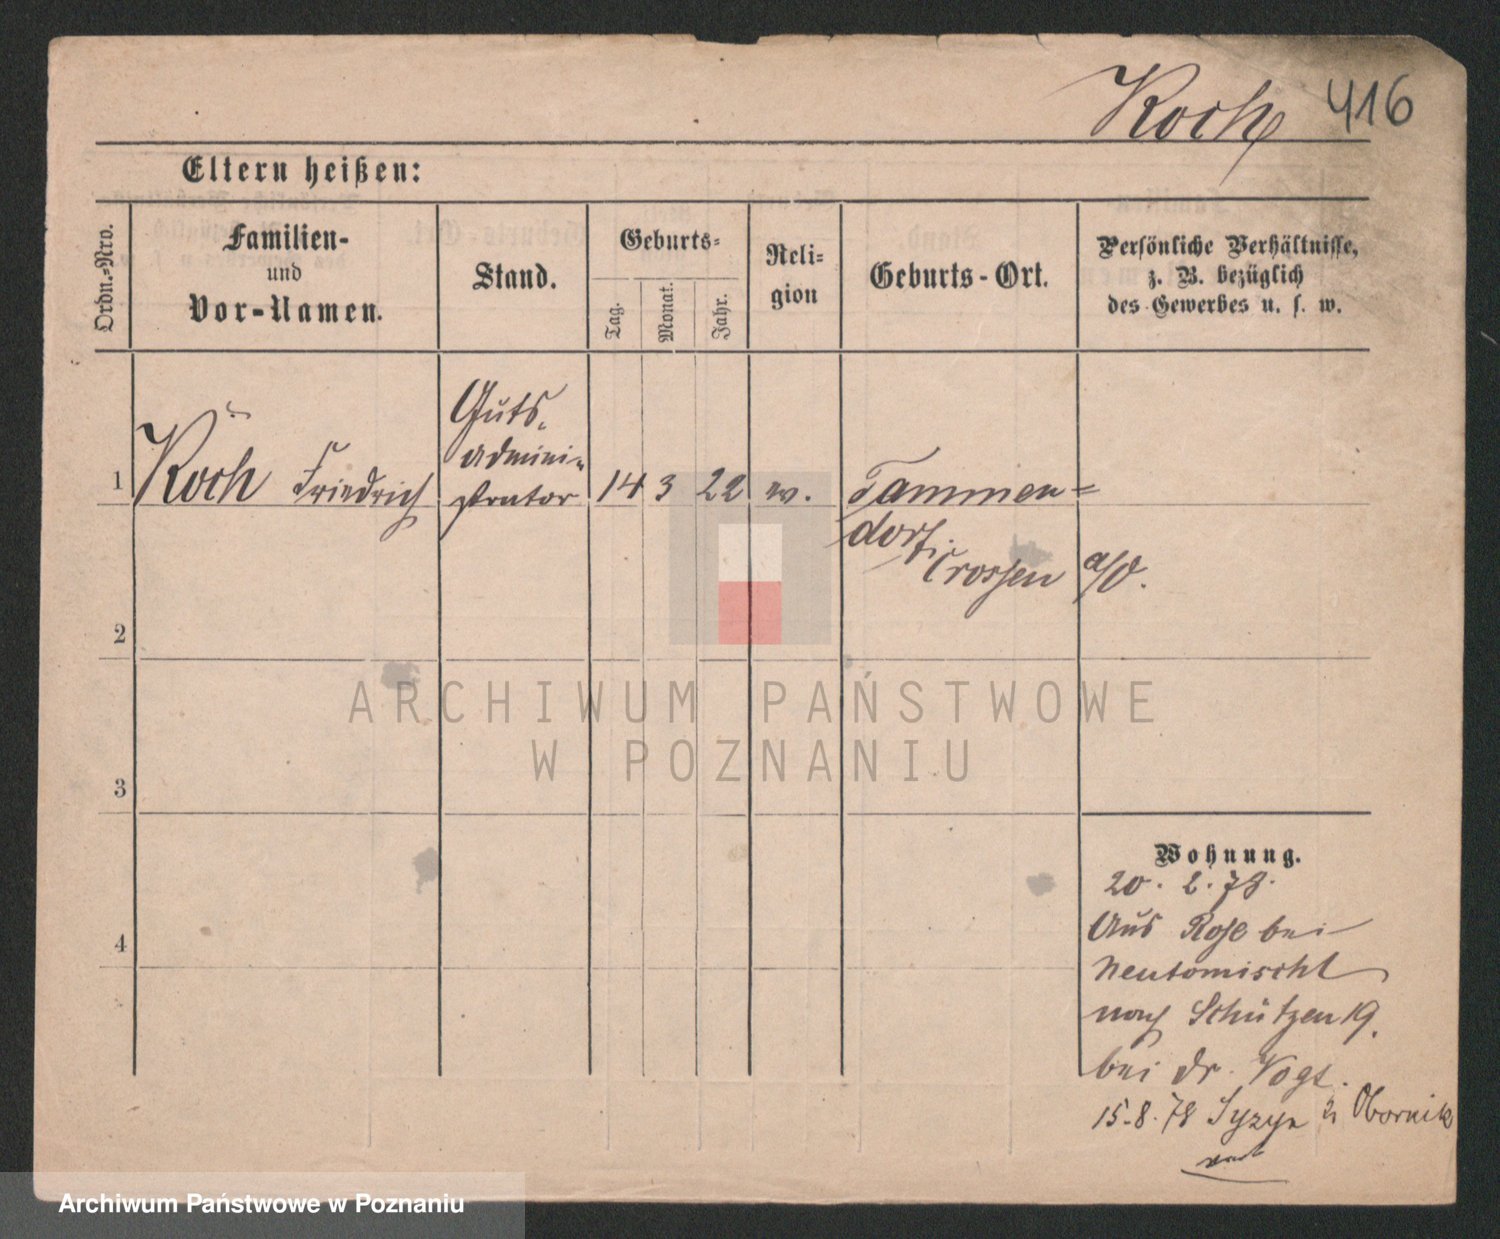 Koch 416
Eltern heißen:
Ordn.-Nro.
Familien-
und
Vor-Namen.
Stand.
Geburts-
Tag.
Monat.
Jahr.
Reli-
gion
Geburts-Ort.
Persönliche Verhältnisse,
z. B. bezüglich
des Gewerbes u. s. w.
Guts-
admini-
1 Koch Friedrich strator 14 3 22 ev. Tammen=
dorf.
Crossen a/O.
2
3
4
Wohnung.
20. 2. 78.
Aus Rose bei
Neutomischl
nach Schützen 19.
bei Dr. Vogt.
15.8.78 Obornik
ARCHIWUM PAŃSTWOWE
W POZNANIU
Archiwum Państwowe w Poznaniu